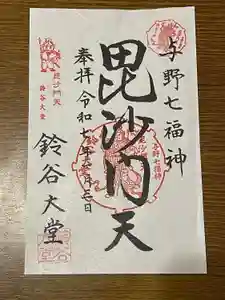 与野七福神
毘沙門天
奉拝 令和七年
鈴谷大堂
毘沙門天
鈴谷大堂
与野七福神